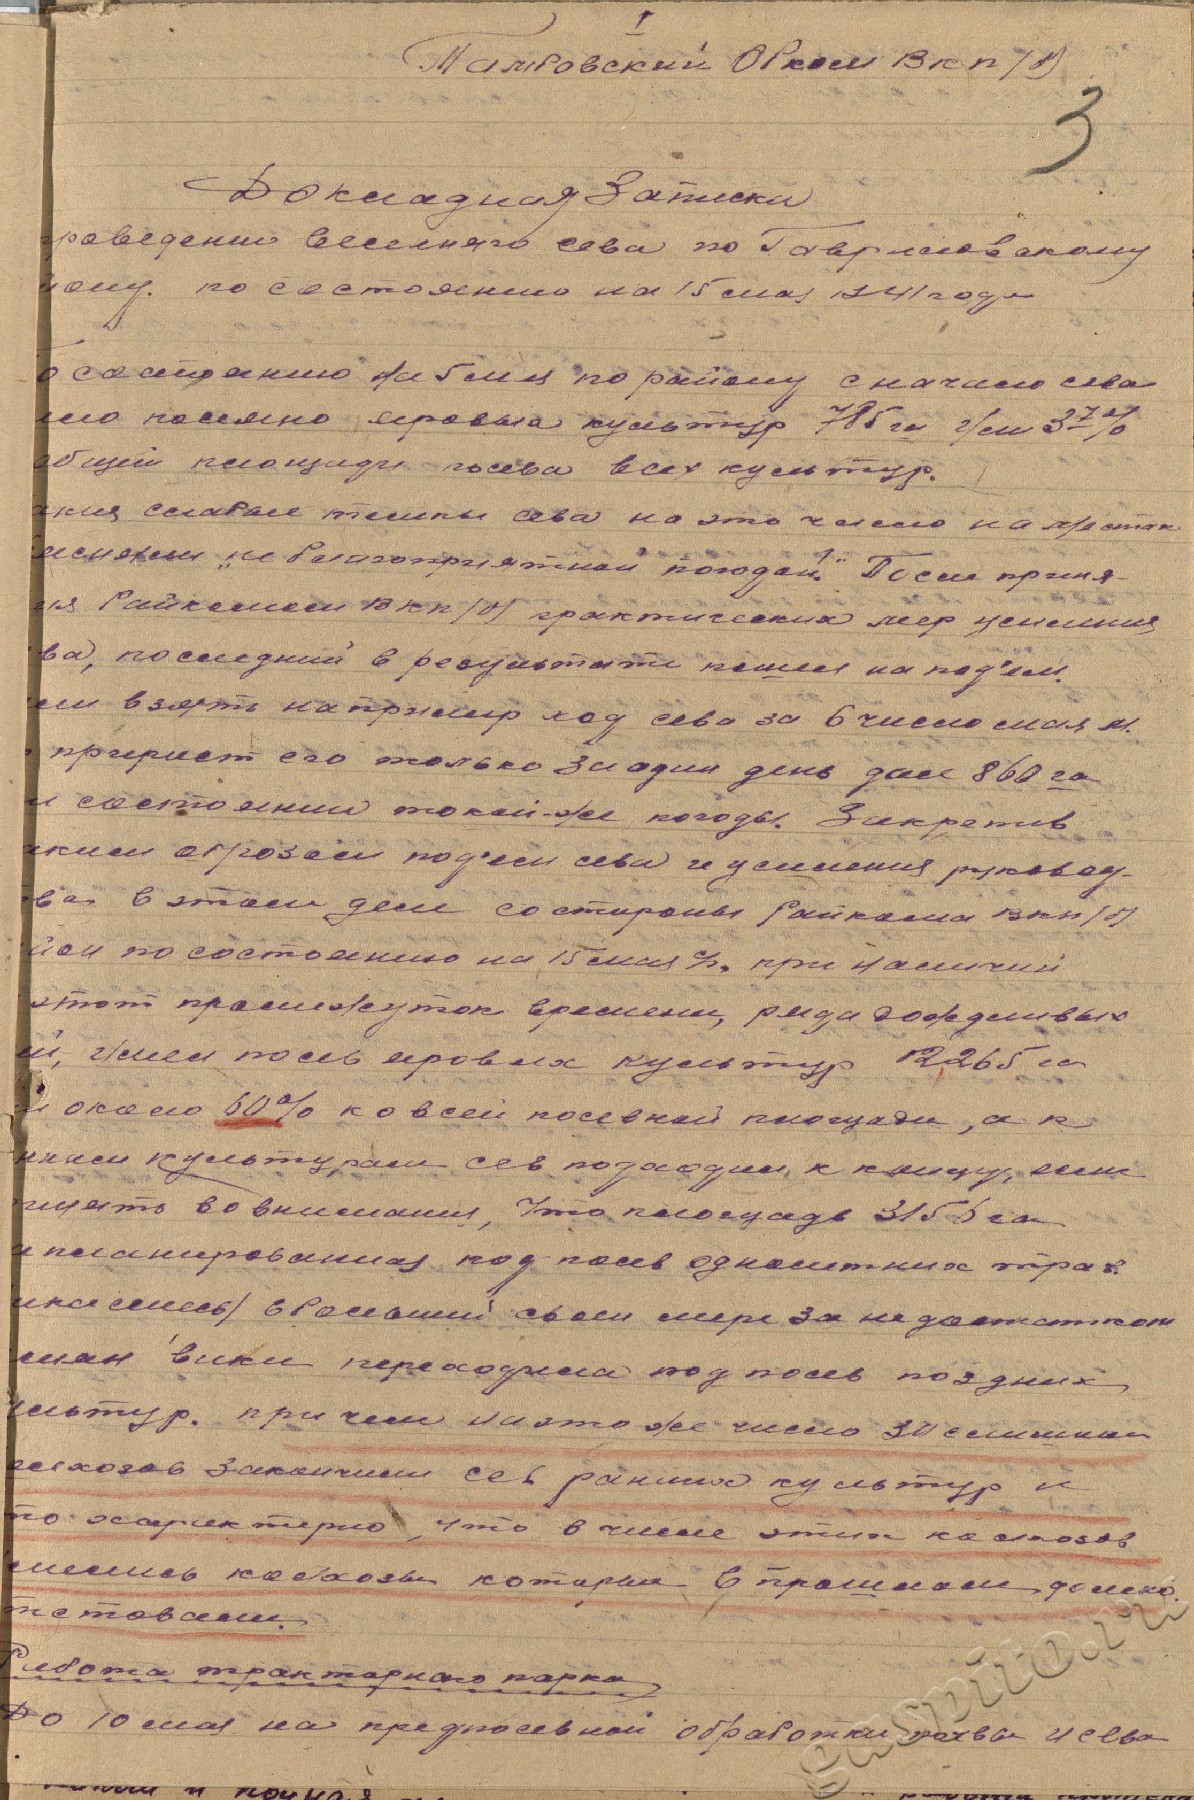 1
Тамбовский Обком ВКП/б/
3
Докладная Записка
проведении весеннего сева по Гавриловскому
по состоянию на 15 мая 1941 года
состоянию на 5 мая по району с начало сева
посеяно яровых культур 785 га или 3,7%
общей площади посева всех культур.
слабые темпы сева на это число на местах
"не благоприятной погодой." После приня-
тия Райкомом ВКП/б/ практических мер усиления
ва, последний в результате пошел на под'ем.
взять например ход сева за 6 число мая м.
прирост его только за один день дал 860 га
состоянии такой-же погоды. Закрепив
аким образом под'ем сева и усиления руковод-
ва в этом деле со стороны Райкома ВКП/б/
по состоянию на 15 мая с/г. при наличии
этот промежуток времени, ряда дождливых
имел посев яровых культур 12265 га
около 60% ко всей посевной площади, а к
культурам сев подходил к концу, если
внять во внимания, что площадь 3156 га
апланированная под посев однолетних трав.
в большей своей мере за недостатком
мян вики переходила под посев поздних
ультур. причем на это же число 30 слишним
олхозов закончили сев ранних культур и
то характерно, что в числе этих колхозов
мелись колхозы которые в прошлом далеко
тставали.
Работа тракторного парка
До 10 мая на предпосевной обработки почвы и сева
gaspito.ru